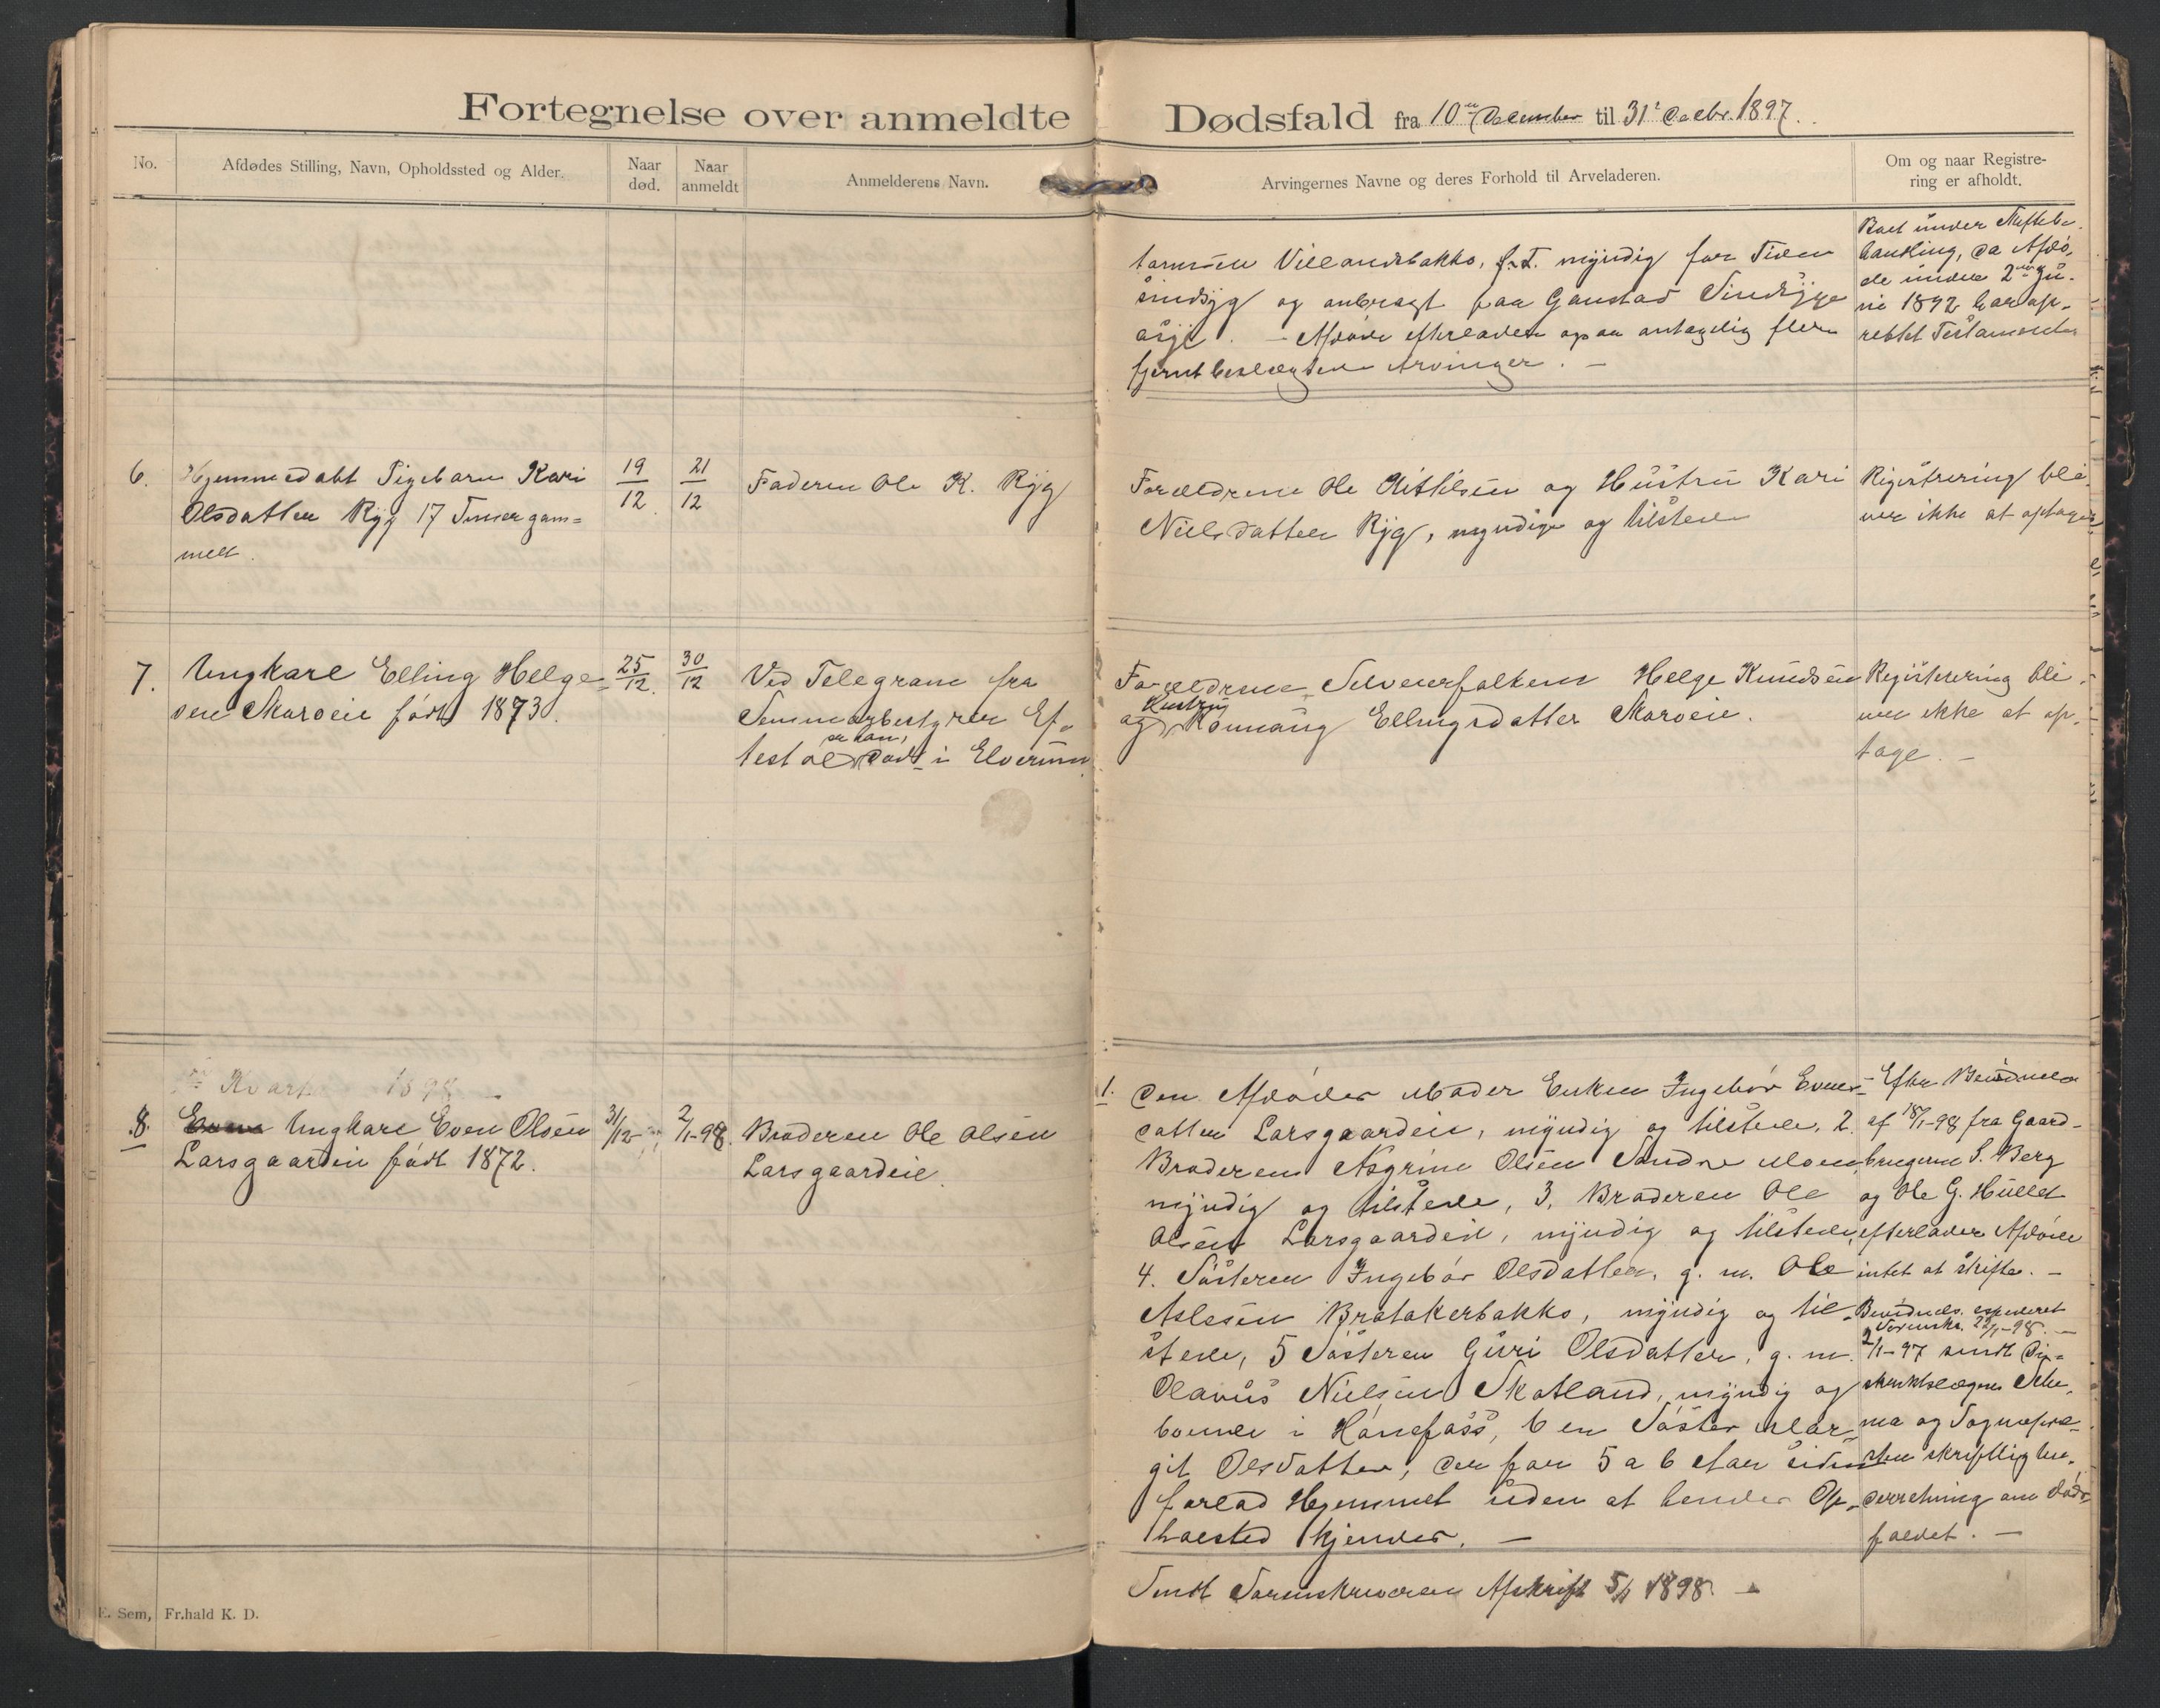 Fortegnelse over anmeldte Dødsfald fra 10de December til 31te Decbr. 1897.
No.
Afdødes Stilling, Navn, Opholdssted og Alder.
Naar død.
Naar anmeldt
Anmelderens Navn.
Arvingernes Navne og deres Forhold til Arveladeren.
Om og naar Registre-
ring er afholdt.
Villandsbakko, f. T. myndig for Tiden
sindsyg og anbragt paa Gaustad Sindsyge
asyl. - Afdøde efterlader ogsaa antagelig flere
fjernt beslegtede Arvinger. -
Boet under Skiftebe-
handling, da Afdø-
de under 2den Ju-
ni 1892 har op-
rettet Testamente
6.
Hjemmedøbt Pigebarn Kari
Olsdatter Ryg 17 Timer gam=
mel.
19/12
21/12
Faderen Ole K. Ryg
Forældrene Ole Kittilsen og Hustru Kari
Nielsdatter Ryg, myndige og tilstede
Registrering bli-
ver ikke at optage
7.
Ungkarl Elling Helge=
sen Skaroeie født 1873.
25/12.
30/12
Ved Telegram fra
Ef-
testøl, er han, død i Elverum.
Forældrene Selveierfolkene Helge Knudsen
og Hustru Ellingsdatter Skaroeie.
Registrering bli-
ver ikke at op-
tage. -
Kvart 1898
8.
Ungkarl Even Olsen
Larsgaardeie født 1872.
31/12
2/1-98.
Broderen Ole Olsen
Larsgaardeie.
1. Den Afdødes Moder Enken Ingebør Evens-
datter Larsgaardeie, myndig og tilstede, 2.
Broderen Asgrim Olsen Søndre Moen,
myndig og tilstede, 3. Broderen Ole
Olsen Larsgaardeie, myndig og tilstede,
4. Søsteren Ingebør Olsdatter, g. m. Ole
Aslesen Bratakerbakko, myndig og til-
stede, 5 Søsteren Guri Olsdatter, g. m.
Olavus Nielsen Skotland, myndig og
boende i Hønefoss, 6 en Søster Mar-
git Olsdatter, der for 5 a 6 Aar siden
forlod Hjemmet uden at hendes Op-
holdsted kjendes. -
Efter Bevidnelse
af 18/1-98 fra Gaard-
brugerne S. Berg
og Ole G. Hulled
efterlader Afdøde
intet at skifte. -
Bevidnels. expederet
Sorensk. 22/1-98. -
2/1-97 sendt Di-
striktslægen
og Sognepre-
sten skriftlig un-
derretning om døds-
faldet. -
Sendt Sorenskriveren Afskrift 5/1 1898. -
E. Sem, Fr.hald K. D.